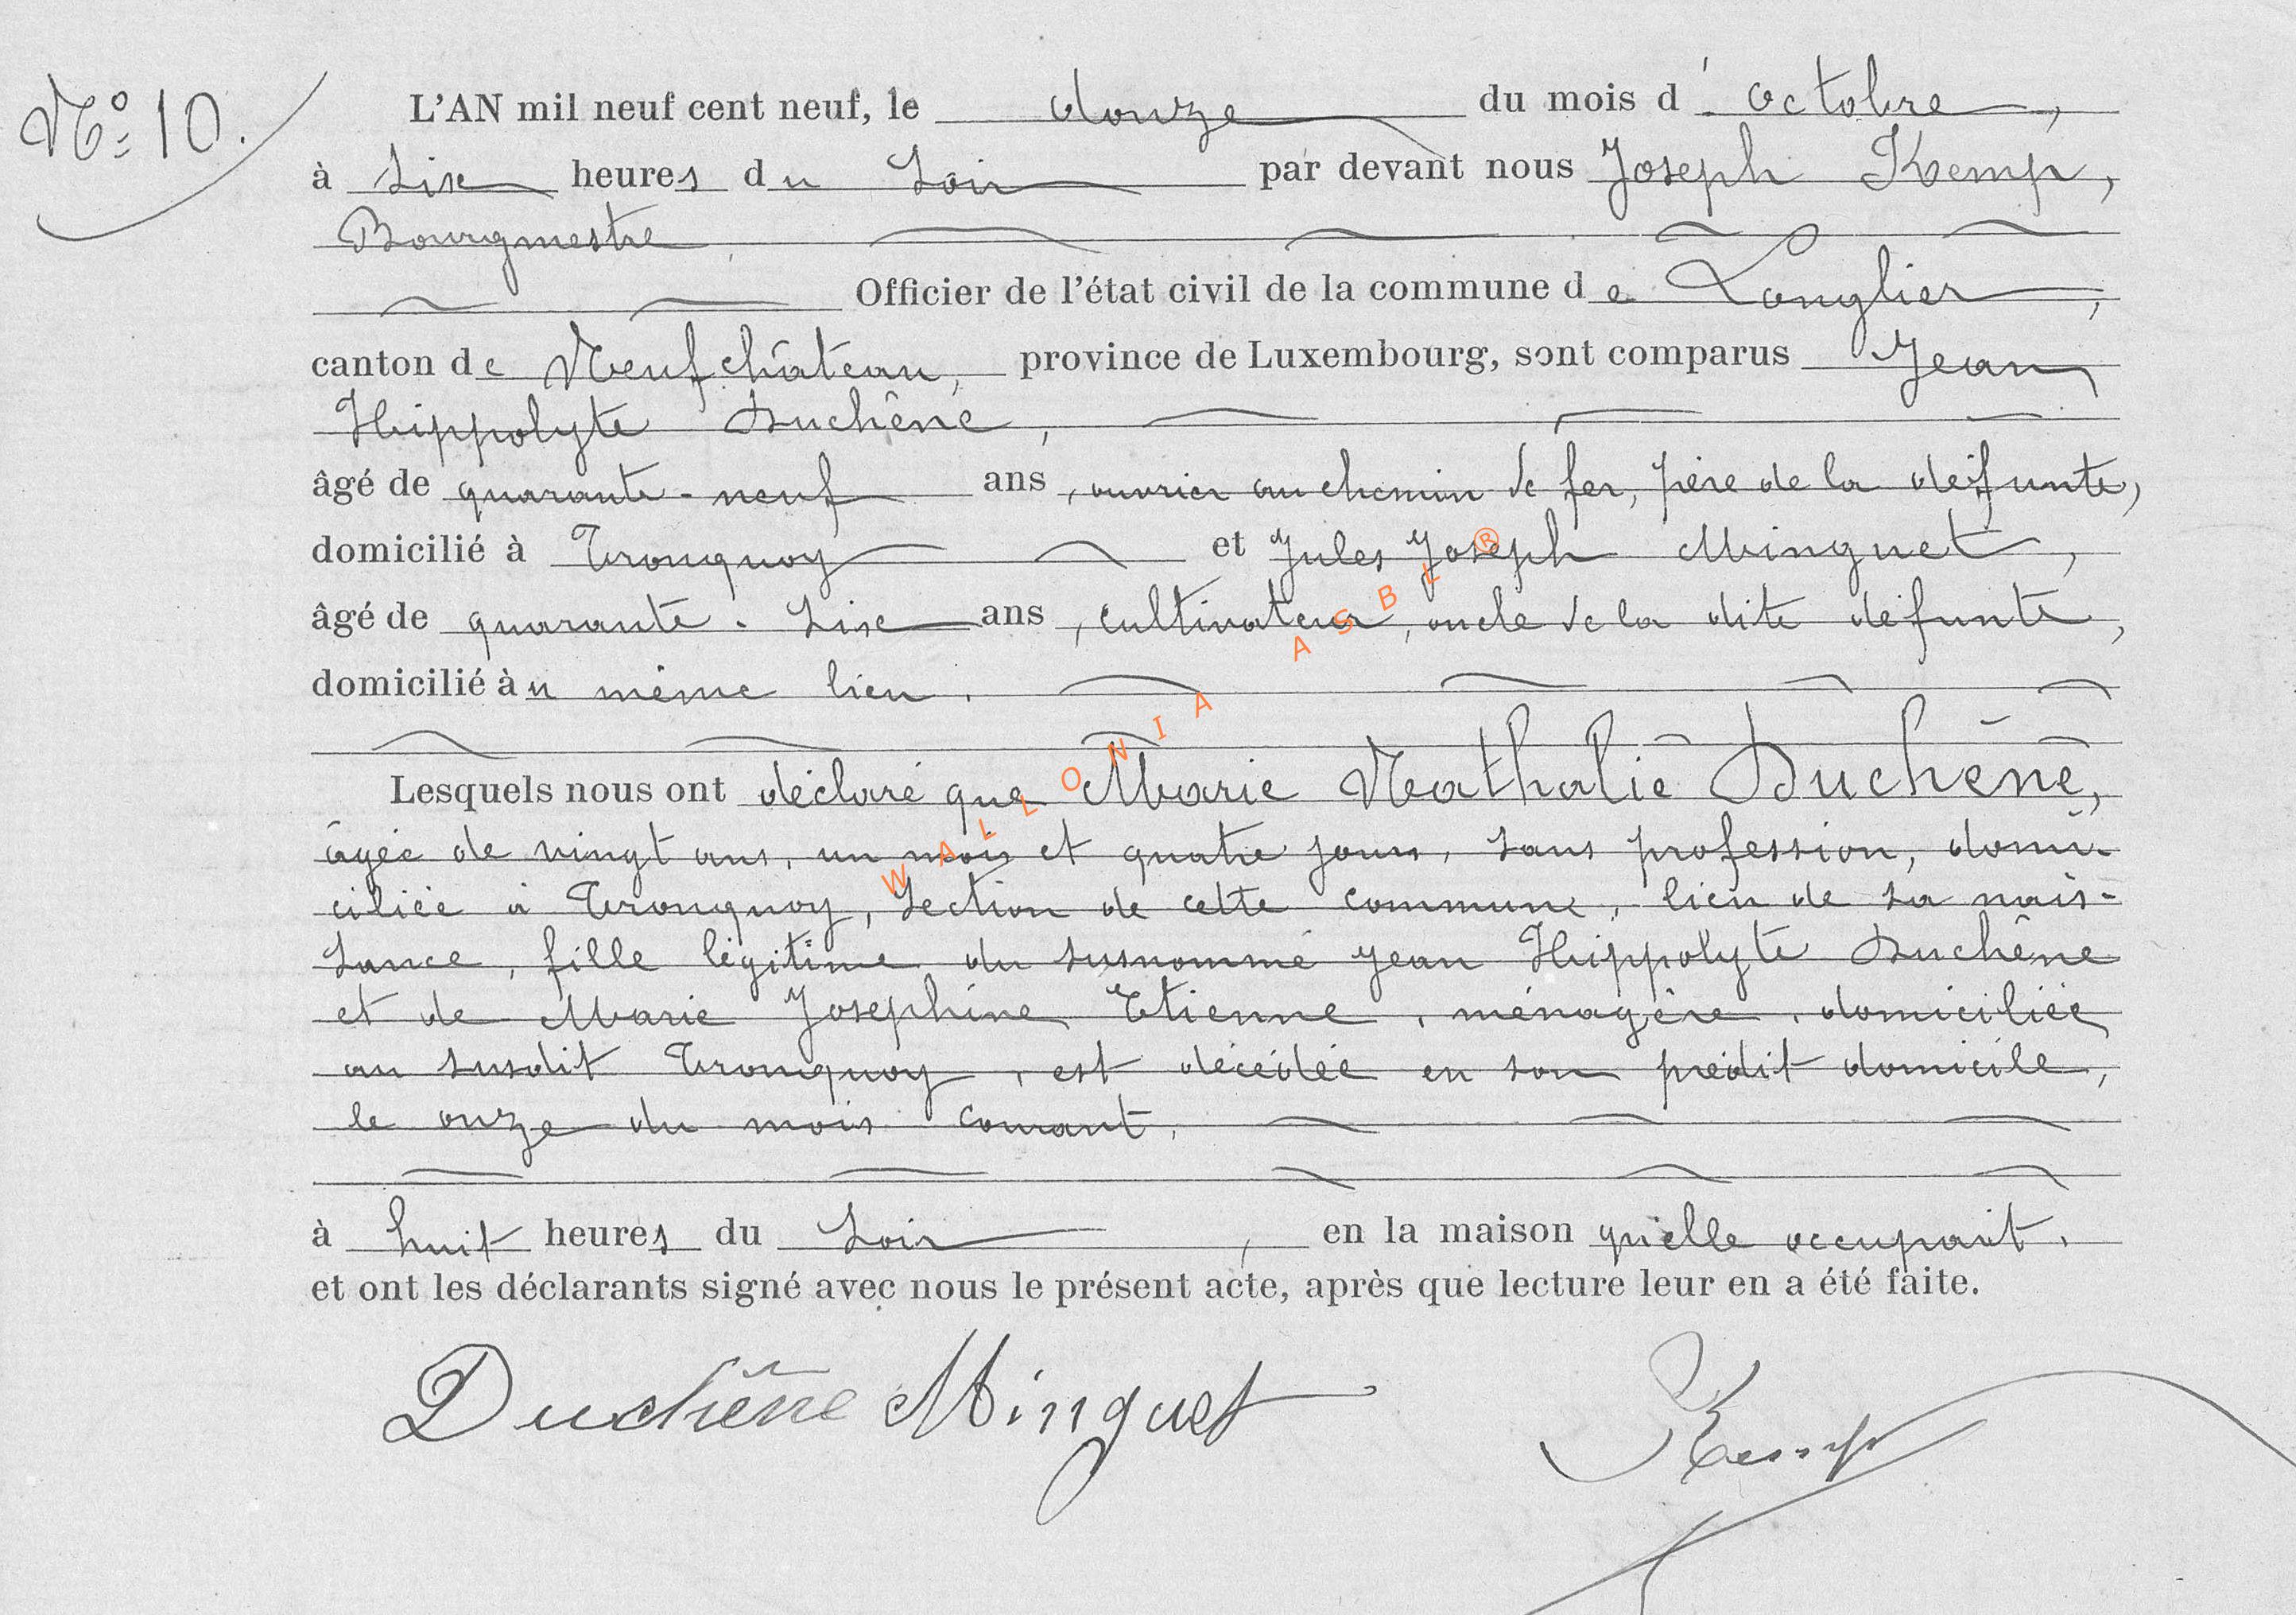 N° 10.
L'AN mil neuf cent neuf, le douze du mois d'octobre,
à six heures du soir par devant nous Joseph Kemp,
Bourgmestre,
Officier de l'état civil de la commune de Longlier,
canton de Neufchâteau, province de Luxembourg, sont comparus Jean
Hippolyte Duchêne,
âgé de quarante-neuf ans, ouvrier au chemin de fer, père de la défunte,
domicilié à Tronquoy et Jules Joseph Minguet,
âgé de quarante-six ans, cultivateur, oncle de la dite défunte,
domicilié àu même lieu.
Lesquels nous ont déclaré que Marie Nathalie Duchêne,
âgée de vingt ans, un mois et quatre jours, sans profession, domi-
ciliée à Tronquoy, section de cette commune, lieu de sa nais-
sance, fille légitime du susnommé Jean Hippolyte Duchêne
et de Marie Joséphine Etienne, ménagère, domiciliée
au susdit Tronquoy, est décédée en son prédit domicile,
le onze du mois courant,
à huit heures du soir, en la maison qu'elle occupait.
et ont les déclarants signé avec nous le présent acte, après que lecture leur en a été faite.
Duchêne Minguet Kemp
WALLONIA ASBL ®